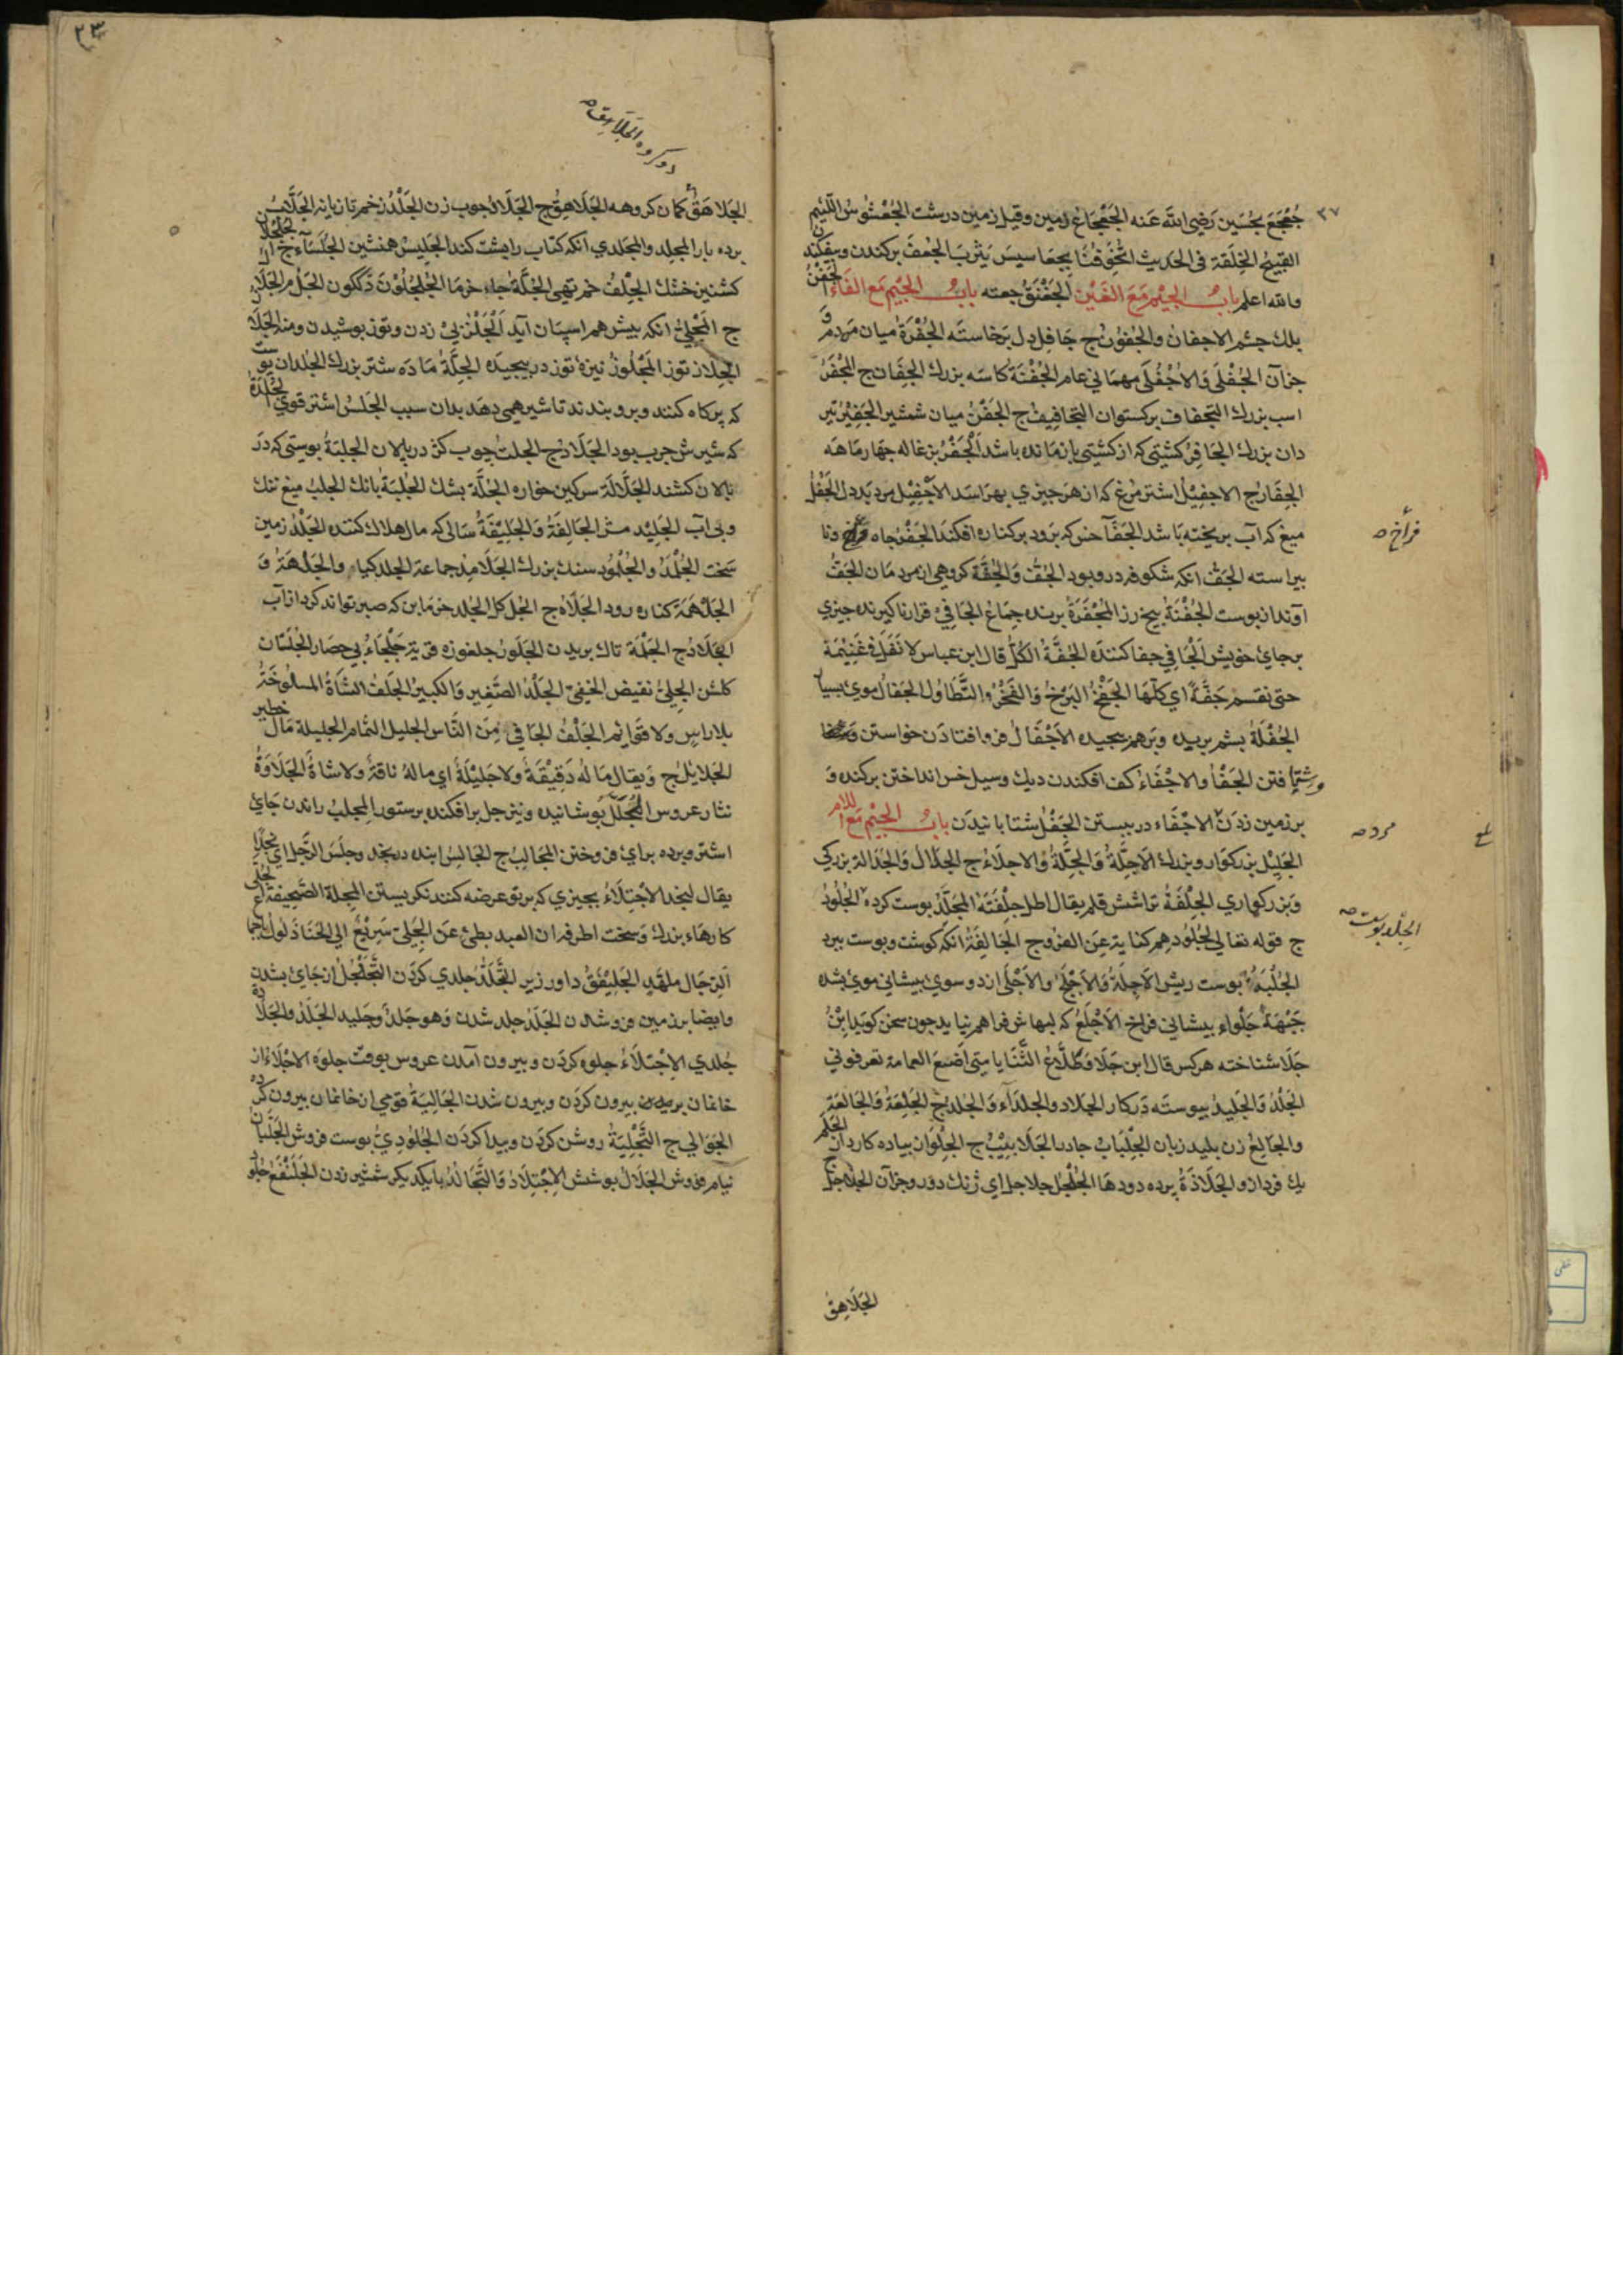 جُعْجَعَ بحُسَين رَضِى اللّه عَنه الجَعْجَاعُ زمين وقيل زمين درشت الجُعْشُوسُ اللّئيم
القبيحُ الخِلقَة فى الحديث بجعَاسيسَ يَثربَ الجُعفَ بركندن وبيفكند
والله اعلم بابُ الجيْم مَعَ الغَيْن الجَغْنَقُ جعته بابُ الجيْم مَع الفَاء الجَفْنُ
بلك چشم الاجفانُ والجُفوُنُ ج جَافِل دل برخاسته الجُفْرَةُ ميان مَردم و
جزآن الجُفْلَى وَالاُجْفُلَى مهمَانى عام الجُفْنَة كاسَه بزرك الجِفَان ج المُجْفَرُ
اسب بزرك التجفاف بركستوان التجَافِيفُ ج الجَفْنُ ميان شمشير الجَفِيْرُ تير
دان بزرك الجَافِرُ كشتى كه از كشتى بازمانده باشد اَلْجَفْرُ بزغاله چهارماهه
الجِفَارُ ج الاجفِيْلُ اشترمُرغ كه از هرچيزي بهرَاسَد الاَجْفِيْل مرد بَددل الجَفْلُ
ميغ كه آب بريخته بَاشد الجَفَآ خس كه برود بركناره افكند الجَفْرُ چاه فراخ ونا
بيراسته الجَفُّ انكه شكوفه درو بود الجُفُّ وَالجُفَّة كروهى از مردمَان الجَفُّ
آوند از پوست الجُفْنَةُ بيخ رز المُجْفَرَةُ برنده جِمَاعُ الجَافِىْ قرار ناكيرنده چيزي
برجاى خويش الجَافِي جفا كننده الجُفَّةُ الكُلُّ قال ابن عباس لا نَفَلَ في غَنِيْمَة
حتى تقسم جَفَّةً اي كلّهَا الجَفْخُ البَزخُ وَالفَخْرُ والتَّطاوُل الجَفالُ موى بسيار
الجُفْلَةُ پشم بريده وبَرهم پيچيده الاَجْفَالُ فرو افتادَن خواستن
فتن الجَفْأُ والاجْفَاءُ كف افكندن ديك وسيل خس انداختن بركنده وَ
برزمين زدَن الاجْفَاء در ببستن الجَفْلُ شتابانيدَن بابُ الجيْم مَع اللام
الجَلِيْل بزركوار وبزرك الاَجِلَّةُ وَالجِلَّةُ والاجِلاَءُ ج الجَلاَلُ وَالجَلاَلَة بزركى
وبَزركواري الجِلْفَةُ تراشش قلم يقال اطل جِلْفَتَهُ المُجَلَّدُ پوست كرده الجُلُودُ
ج قوله تعالى لجُلُودِهِم كناية عَن الفروج الجَالِفَةُ انكه كوشت وپوست ببرد
الجُلْبَةُ پوست ريش الاَجِلَةُ وَالاَجْلَحُ والاَجْلَى از دوسوي پيشاني موى بشده
جَبْهَةٌ جَلْواء پيشاني فراخ الاَجْلَعُ كه لبهاش فراهم نيايد چون سخن كويد اِبْنُ
جَلَا شناخته هركس قال ابن جَلَا وَطَلَّاعُ الثَّنَايا مَتَى اَضَعَ العمامة تعرفوني
الجَلْدُ وَالجَليدُ پيوسته دَركار الجِلاد والجلدَآء وَالجلد ج الجَلِعَةُ وَالجَالِعَة
والجَالِعُ زن پليد زبان الجِلْبَابُ چادر الجَلَابِيْبُ ج الجِلْوَاز پياده كاردار الجَلَم
يك فرد ازو الجَلاَذَةُ پرده دودها الجُلْجُل جلاجل اي زنك دور وجزآن
الجَلَاهِقُ
فراخ صح
مرد صح
الجِلد پوست صح
٣٧
٢٣
الجَلاَهِقُ
الجَلاهَقُ كمان كروهه الجَلاَهِقُ ج الجَلَادُ چوب زن الجَلْدُ زخم تازيانه الجَلَّابُ
برده بار المجلِد والمجَلدي انكه كتاب را پشت كند الجَلِيسُ همنشين الجُلَسَآءُ ج
كشنيز خشك الجِلْفُ خم تهى الجُلَّةُ جاى خرمَا
ج انكه پيش هم اسپان آيد اَلْجَلْزُ پى زدن وتوز پوشيدن ومنه
الجِلاز توز المَجْلُوزُ نيزه توز در پيچيده الجِلَّةُ مَادَه شتر بزرك الجُلدان پو
كه پركاه كنند وبرو بندند تا شير همى دهَد بدان سبب الجَلْسُ اشتر قوي الجُلْدَةُ
كه شيرش چرب بود الجَلَادُ ج الجلبُ چوب كژ در پالان الجلبَةُ پوستى كه در
پالان كشند الجَلاَّلَة سركين خواره الجُلَّة پشك الجُلْبَةُ بانك الجلبُ ميغ تنك
وبى آب الجَليْد مثل الجَالِفَةُ وَالجَلِيْفَةُ سَالى كه مال هلاك كننده الجَلْدُ زمين
سَخت الجُلْمُدُ والجُلْمُود سنك بزرك الجَلاَمِدُ جماعة الجلد كياه والجَلْهَةُ وَ
الجَلْهَمَة كناره رود الجَلَاهُ ج الجُل كل الجُلد خرمَابن كه صبر تواند كرد از آب
الجِلَادُ ج الجَلْمَة تاك بريدن الجَلَوزُ جلغوزه قرية جَلْحَاءُ بي حصَار الجُلَسَان
كلشن الجِلىُّ نقيض الخفىّ الجَلَلُ الصَّغِير وَالكبيرُ الجَلَفُ الشَّاةُ المسلُوخَةُ
بلاراسٍ ولا قوَائم الجَلْفُ الجَافى مِنَ النَّاس الجليل الثّمام الجليلة مَال خطير
الجَلايِلُ ج وَيقال مَا لَهُ دَقِيْقَةٌ ولا جَلِيْلَةٌ اي ماله ناقةٌ ولا شاةٌ الجَلَاوَةُ
نثار عروس المُجَلَّلُ پوشانيده ونيز جل برافكنده برستور المجلبُ راندن جَاىْ
اشتر وبرده براى فروختن المَجَالِبُ ج الجَالِسُ اينده در نجد وجلَسَ الرَّجل اي نجدًا
يقال لنجد الاجْتِلَاءُ بچيزي كه برتو عرضه كنند نكريستن المجلة الصَّحِيفة الجُلّى
كارهَاء بزرك وَسخت اطرفه ان العبد بطئ عَنِ الجُلّى سَرِيعٌ الى الخَنَا ذَلولٌ باجماع
اَلرِّجَال ملهَّدٍ الجَلِيْفَقُ داور زير التَّجَلُّدُ جلدي كردَن التَّجَلْجُلُ از جَاى بشدن
وايضا بزمين فروشدن الجَلَدُ جلد شدن وَهو جَلدٌ وجَليد الجَلَدُ والجَلَادَة
جُلدي الاِجْتلاَءُ جلوه كردَن وبيرون آمدن عروس بوقت جلوه الاجْلاَءُ از
خانمان بيرون كردَن وبيرون شدن الجَالِيَةُ قومى از خانمان بيرون كرده
الجَوَالي ج التَّجْلِيَةُ روشن كردَن وپيدا كردَن الجُلُودِيُّ پوست فروش الجَلَبَّانُ
نيام فروش الجَلَالُ پوشش الاِجْتِلَادُ وَالتَّجَالُدُ بايكديكر شمشير زدن الجَلَنْفَعُ